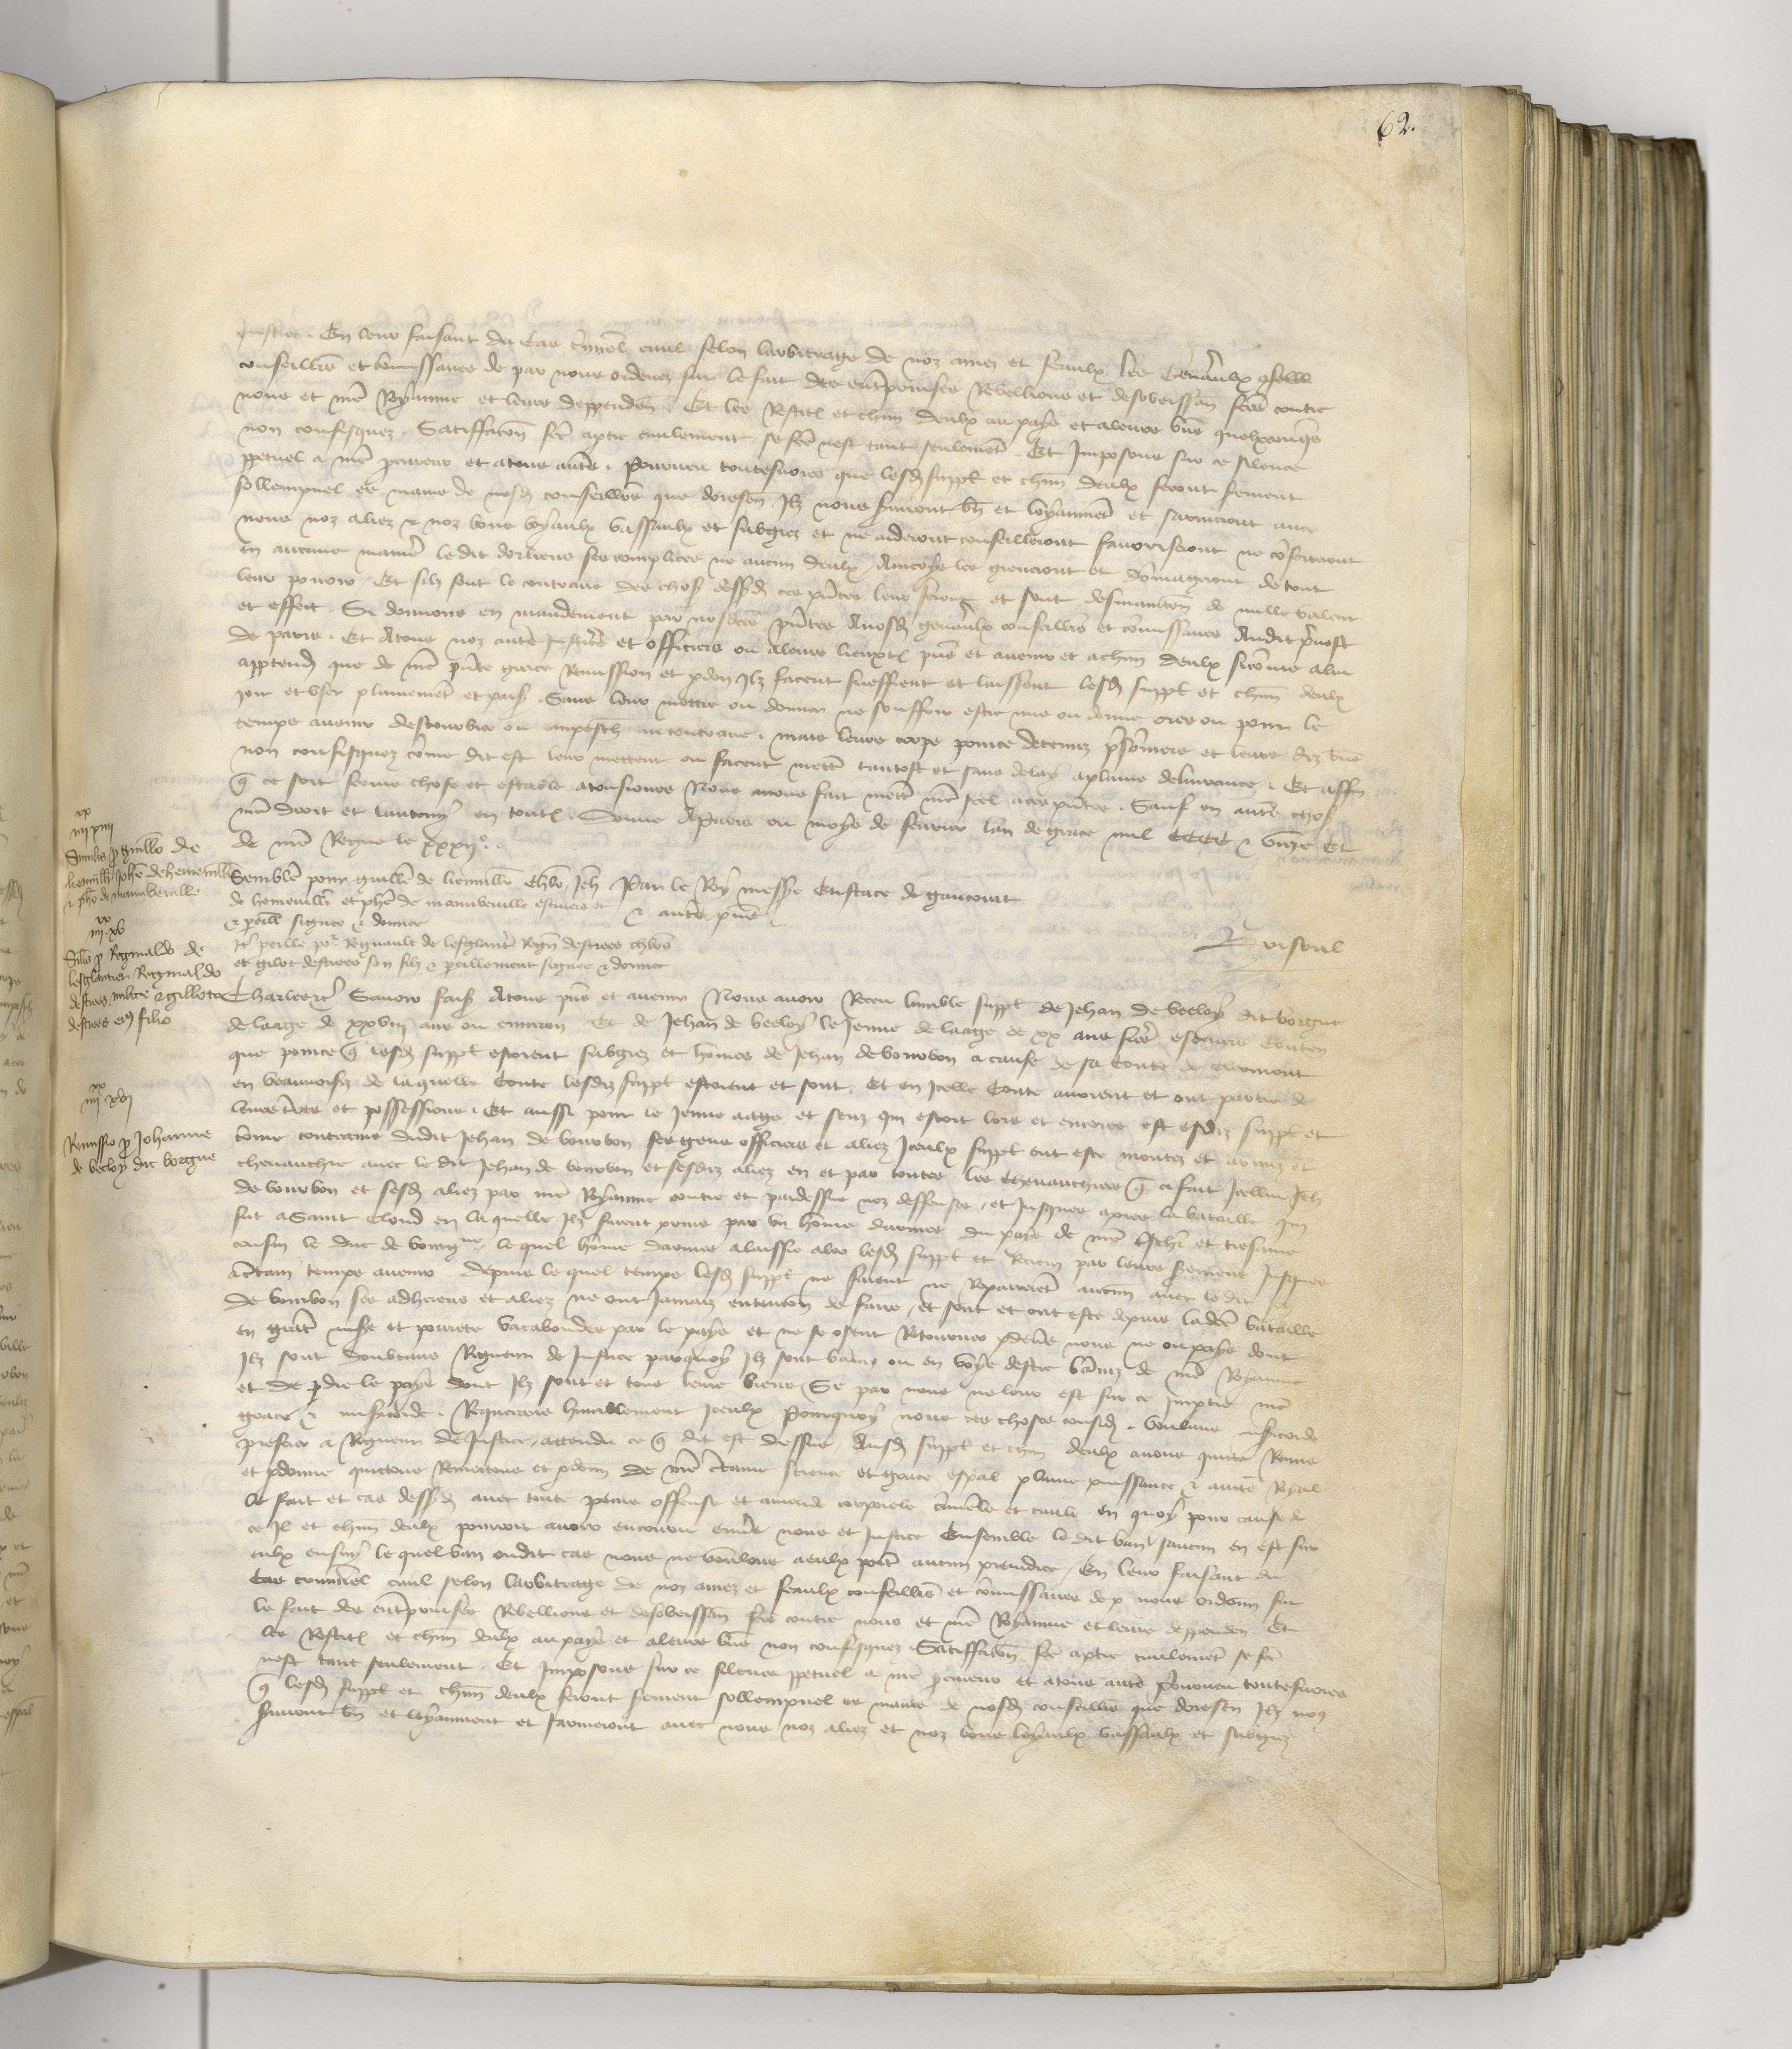 62.
justice. En leur faisant du cas criminel civil selon larbitrage de noz amez et feaulx les generaulx
conseilliers et commissaires de par nous ordenez sur le fait des entreprinses rebellions et desobeissances faites contre
nous et nostre Royaume et leurs deppendences. Et les restituons et chascun deulx au pays et a leurs biens quelxconques
non confisquez. Satisfaction faite a partie civilement se faite nest tant seulement. Et imposons sur ce silence
perpetuel a nostre procureur et a tous autres. Pourveu toutesvoies que lesdiz supplians et chascun deulx feront serement
sollempnel es mains de nosdiz conseilliers que doresenavant Ilz nous serviront bien et loyaument et sarmeront avec
nous noz aliez et noz bons loyaulx vassaulx et subgiez et ne aideront conseilleront favoriseront ne conforteront
en aucune maniere ledit dorliens ses complices ne aucun deulx. Aincoys les greveront et dommageront de tout
leur povoir. Et silz font le contraire des choses dessusdites ces presentes leur seront et sont desmaintenant de nulle valeur
et effect. Si donnons en mandement par nosdites presentes A nosdiz generaulx conseilliers et commissaires Audit prevost
de paris. Et A tous noz autres justiciers et officiers ou a leurs lieuxtenans presens et avenir et a chascun deulx si comme a lui
appartendra que de nostre presente grace remission et pardon Ilz facent sueffrent et laissent lesdiz supplians et chascun deulx
joir et user plainement et paisiblement. Sans leur mettre ou donner ne souffrir estre mis ou donne ores ou pour le
temps avenir destourbier ou empeschement au contraire. mais leurs corps pource detenuz prisonniers et leurs diz biens
non confisquez comme dit est leur mettent ou facent mettre tantost et sans delay a plaine delivrance. Et affin
que ce soit ferme chose et estable a tousiours Nous avons fait mettre nostre scel a ces presentes. Sauf en autres choses
nostre droit et lautruy en toutes. Donne A Paris ou moys de fevrier lan de grace mil CCCC et unze Et
de nostre Regne le xxxije.
Semblable pour guillaume de Jehan Par le Roy messire Eustace de gaucourt
de hemevillier et phelippe de manneville escuiers et et autres presens
et pareille signee et donnee
Item pareille pour Regnault de lesglantier Regnault destrees chevaliers
et gilot destrees son filz et pareillement signee et donnee
Charles etc. Savoir faisons A tous presens et avenir Nous avoir receu lumble supplication de Jehan de Becloy dit borgne
de laage de xxviij ans ou environ Et de Jehan de becloy le Jeune de laage de xx ans freres escuiers Conten
que pource que lesdiz supplians estoient subgiez et hommes de Jehan de bourbon a cause de sa conte de clermont
en beauvoisiz de laquelle Conte lesdiz supplians estoient et sont. Et en icelle Conte avoient et ont partie de
leurs terres et possessions. Et aussi pour le jeune aage et sens qui estoit lors et encores est esdiz supplians et
comme contrains dudit Jehan de bourbon ses gens officiers et aliez Iceulx supplians ont este montez et armez et
chevauchie avec le dit Jehan de bourbon et sesdiz aliez en et par toutes les chevauchees que a fait icellui Jehan
de bourbon et sesdiz aliez par nostre Royaume contre et pardessus noz deffenses. et jusques apres la bataille qui
fut a Saint Cloud en laquelle Ilz furent prins par un homme darmes du pays de nostre treschier et tresame
cousin le duc de bourgne. lequel homme darmes a laissie aler lesdiz supplians et par leurs seremens jusques
a certain temps avenir depuis lequel temps lesdiz supplians ne furent ne repairerent aucunement avec le dit
de bourbon ses adherens et aliez ne ont jamaiz entencion de faire. et sont et ont este depuis ladite bataille
en grant misere et povrete vacabondes par le pays et ne se osent retourner pardevers nous ne ou pays dont
Ilz sont doubtans Rigueur de Justice parquoy Ilz sont banniz ou en voye destre banniz de nostre Royaume
et de perdre le pays dont Ilz sont et tous leurs biens Se par nous ne leur est sur ce impartie nostre
grace et misericorde. Requerans humblement Iceulx Pourquoy nous ces choses considerees. voulans misericorde
preferer a Rigueur de Justice. attendu ce que dit est dessus. Ausdiz supplians et chascun deulx avons quitte Remis
et pardonne quictons remettons et pardonnons de nostre certaine science et grace especial plaine puissance et auctorite Royal
le fait et cas dessusdiz avec toute peine offense et amende corporele criminele et civile en quoy pour cause de
ce Il et chascun deulx pourroit avoir encouru envers nous et justice Ensemble le dit ban saucun en est sur
eulx ensuy lequel ban oudit cas nous ne voulons a eulx porter aucun preiudice. En leur faisant du
cas criminel civil selon larbitrage de noz amez et feaulx conseilliers et commissaires de par nous ordonnez sur
le fait des entreprinses Rebellions et desobeissances faites contre nous et nostre Royaume et leurs deppendences Et
les restituons et chascun deulx au pays et a leurs biens non confisquez Satisfaction faite a partie civilement se faite
nest tant seulement. Et Imposons sur ce silence perpetuel a nostre procureur et a tous autres Pourveu toutesvoies
que lesdiz supplians et chascun deulx feront serement sollempnel es mains de nosdiz conseilliers que doresenavant Ilz nous
serviront bien et loyaument et sarmeront avec nous noz aliez et noz bons loyaulx vassaulx et subgiez
xx
iiij xiiij
Similis pro guillelmo de
Johanne de hemeviller
et philippo de manneville
xx
iiij xv
Similis pro Reginaldo de
lesglantier Reginaldo
destrees milite et gilloto
destrees eius filio
xx
iiij xvj
Remissio pro Johanne
de becloy dit borgne